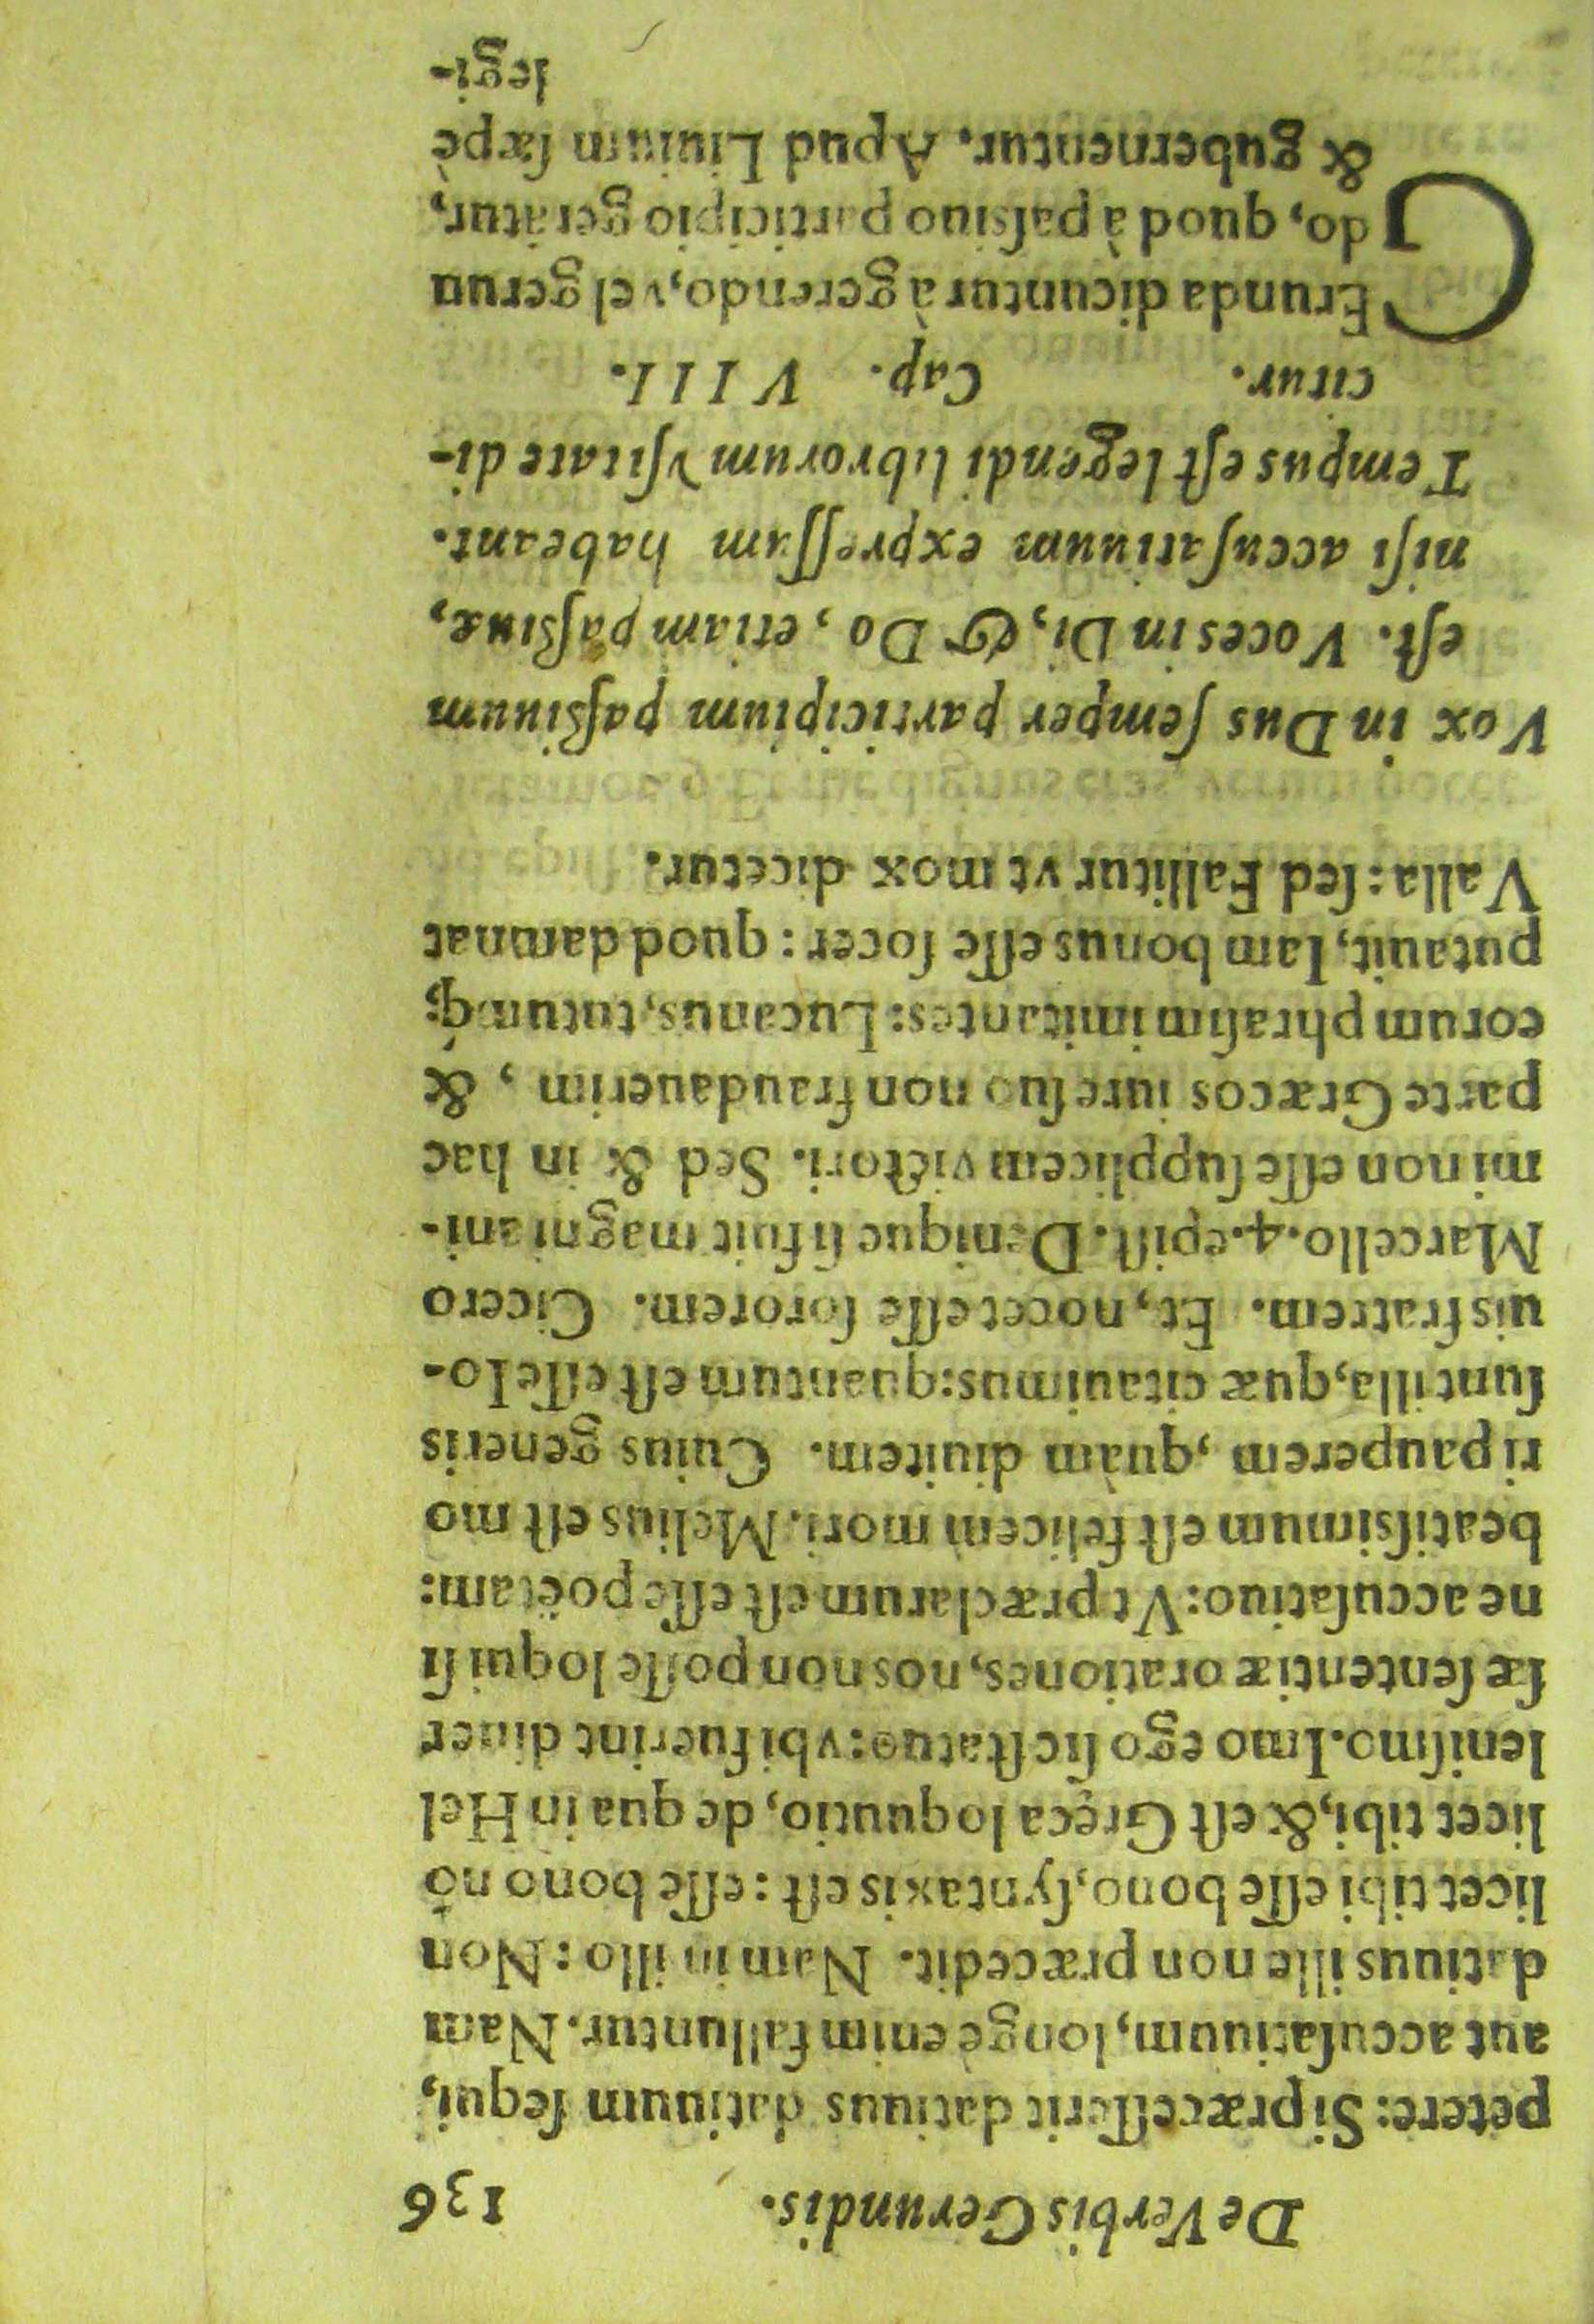 De Verbis Gerundis. 136
petere: Si præceſſerit datiuus datiuum ſequi,
aut accuſatiuum, longè enim falluntur. Nam
datiuus ille non præcedit. Nam in illo: Non
licet tibi eſſe bono, ſyntaxis eſt: eſſe bono nõ
licet tibi, & eſt Gręca loquutio, de qua in Hel
leniſmo. Imo ego ſic ſtatuo: vbi fuerint diuer
ſæ ſententiæ orationes, nos non poſſe loqui ſi
ne accuſatiuo: Vt præclarum eſt eſſe poëtam:
beatiſsimum eſt felicem mori. Melius eſt mo
ri pauperem, quàm diuitem. Cuius generis
ſunt illa, quæ citauimus: quantum eſt eſſe Io-
uis fratrem. Et, nocet eſſe ſororem. Cicero
Marcello. 4. epiſt. Denique ſi fuit magni ani-
mi non eſſe ſupplicem victori. Sed & in hac
parte Græcos iure ſuo non fraudauerim, &
eorum phraſim imitantes: Lucanus, tutumq́;
putauit, Iam bonus eſſe ſocer: quod damnat
Valla: ſed Fallitur vt mox dicetur.
Vox in Dus ſemper participium paſsiuum
eſt. Voces in Di, & Do, etiam paſsiuæ,
niſi accuſatiuum expreſſum habeant.
Tempus eſt legendi librorum vſitate di-
citur. Cap. VIII.
GErunda dicuntur à gerendo, vel geruu
do, quod à paſsiuo participio gerãtur,
& gubernentur. Apud Liuium ſæpè
legi-